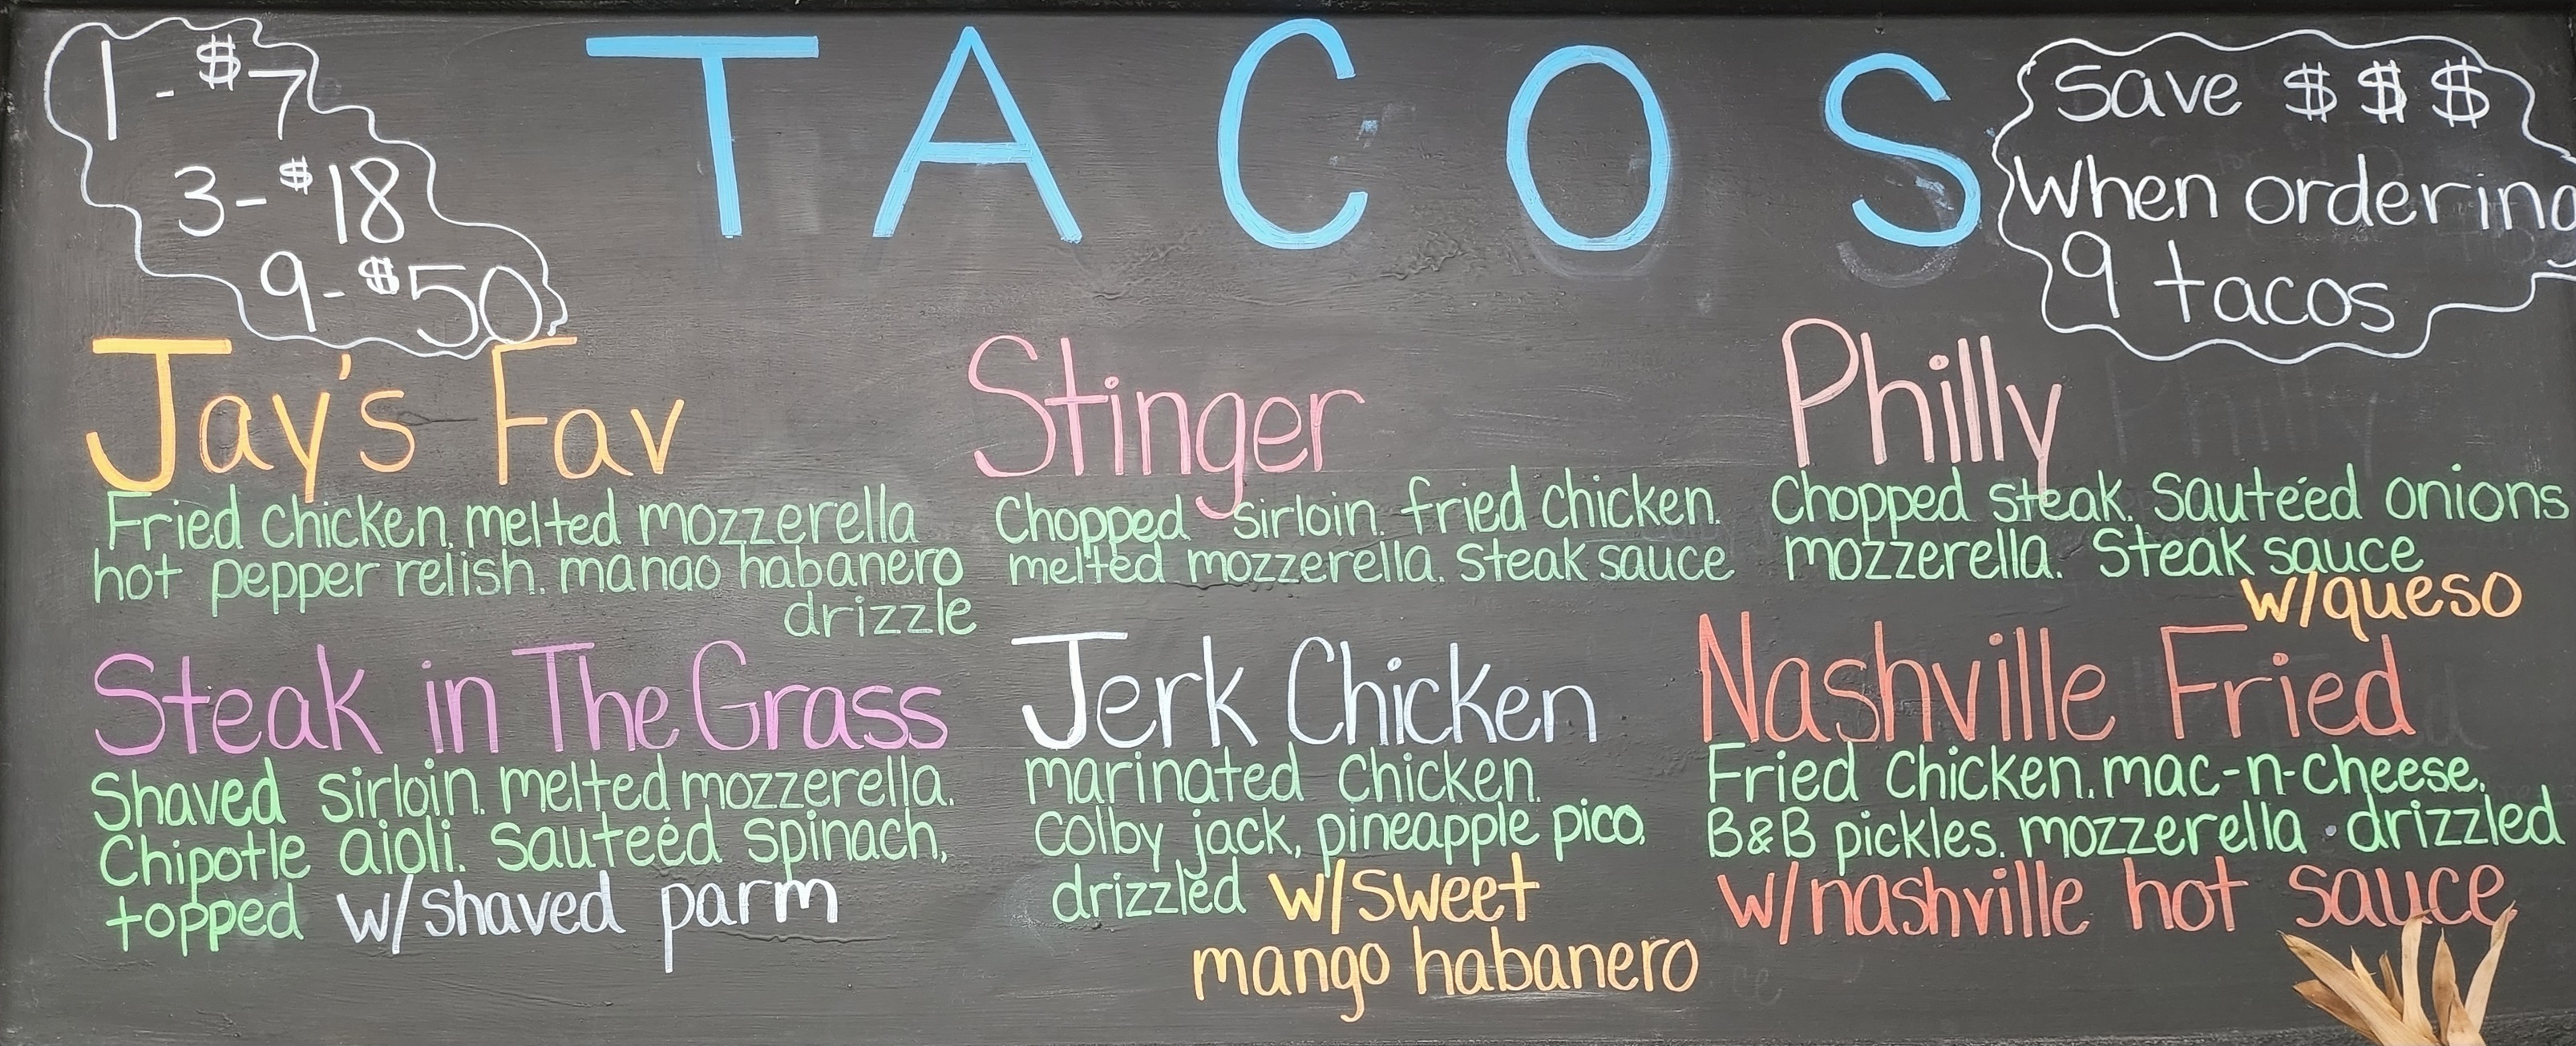 1 - $7
3 - $18
9 - $50
TACOS
Save $ $ $
When ordering
9 tacos
Jay's Fav
Fried chicken. melted mozzerella
hot pepper relish. mango habanero
drizzle
Stinger
Chopped sirloin. fried chicken.
melted mozzerella. steak sauce
Philly
Chopped steak. Sauteéd onions
mozzerella. Steak sauce
w/queso
Steak in The Grass
Shaved sirloin. melted mozzerella.
Chipotle aioli. sauteéd spinach,
topped w/shaved parm
Jerk Chicken
marinated chicken.
Colby jack, pineapple pico,
drizzled w/sweet
mango habanero
Nashville Fried
Fried chicken. mac-n-cheese.
B&B pickles. mozzerella . drizzled
w/nashville hot sauce